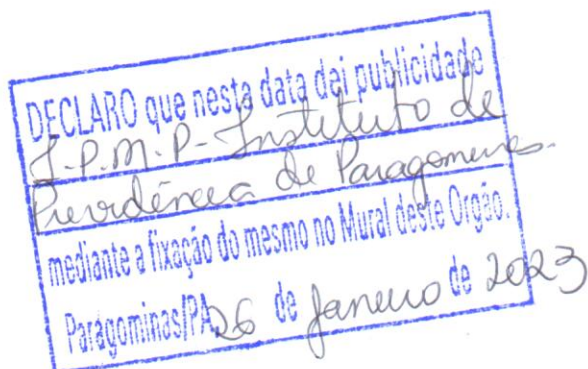 DECLARO que nesta data dei publicidade
I.P.M.P- Instituto de
Previdência de Paragominas.
mediante a fixação do mesmo no Mural deste Orgão.
Paragominas/PA 26 de Janeiro de 2023